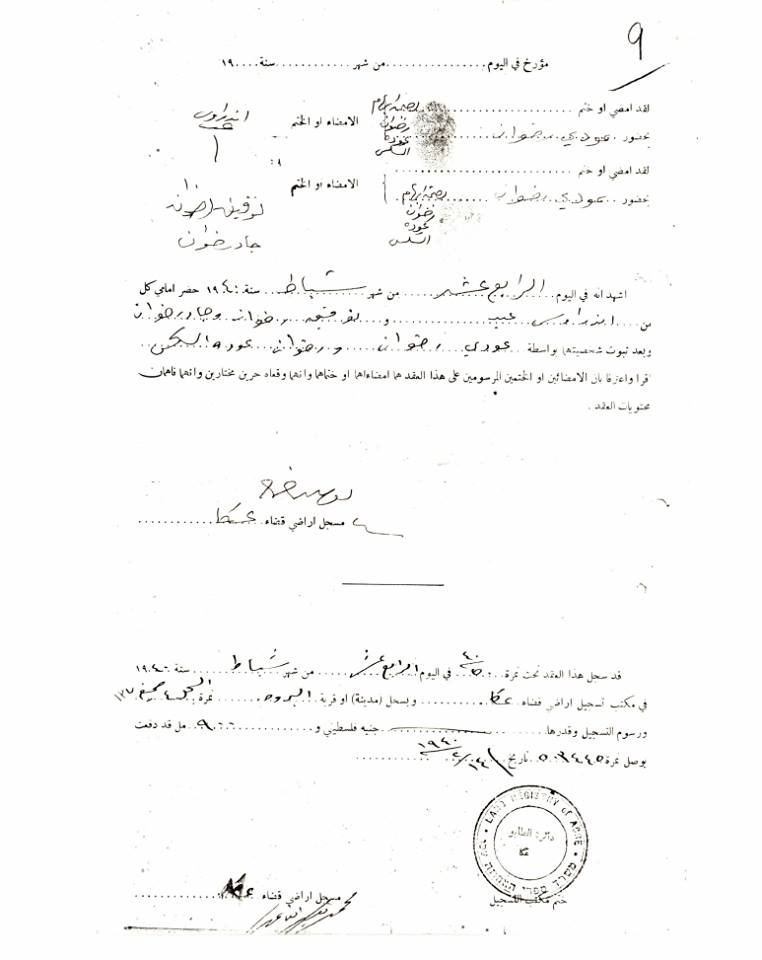 ٩
مؤرخ في اليوم .................. من شهر .............. سنة .... ١٩
لقد امضي او ختم .................... بصمة ابهام
بحضور عودي رضوان رضوان عوده السكس الامضاء او الختم اندراوس
لقد امضي او ختم ....................
بحضور عودي رضوان بصمة ابهام رضوان عوده السكس الامضاء او الختم توفيق رضوان
جاد رضوان
اشهد انه في اليوم الرابع عشر من شهر شباط سنة ١٩٤٠ حضر امامي كل
من اندراوس و توفيق رضوان وجاد رضوان
وبعد ثبوت شخصيتهما بواسطة عودي رضوان ورضوان عوده السكس
اقرا واعترفا بان الامضائين او الختمين المرسومين على هذا العقد هما امضاءاهما او ختماهما وانهما وقعاه حرين مختارين وانهما فاهمان
محتويات العقد .
مسجل اراضي قضاء عكا
قد سجل هذا العقد تحت نمرة في اليوم الرابع عشر من شهر شباط سنة ١٩٤٠
في مكتب تسجيل اراضي قضاء عكا وبسجل (مدينة) او قرية البروه نمرة ١٣٧
ورسوم التسجيل وقدرها جنيه فلسطيني و ٩٠٠ مل قد دفعت
بوصل نمرة تاريخ ١٤/٢/١٩٤٠
LAND REGISTRY OF ACRE
دائرة الطابو
عكا
ختم مكتب التسجيل
مسجل اراضي قضاء عكا